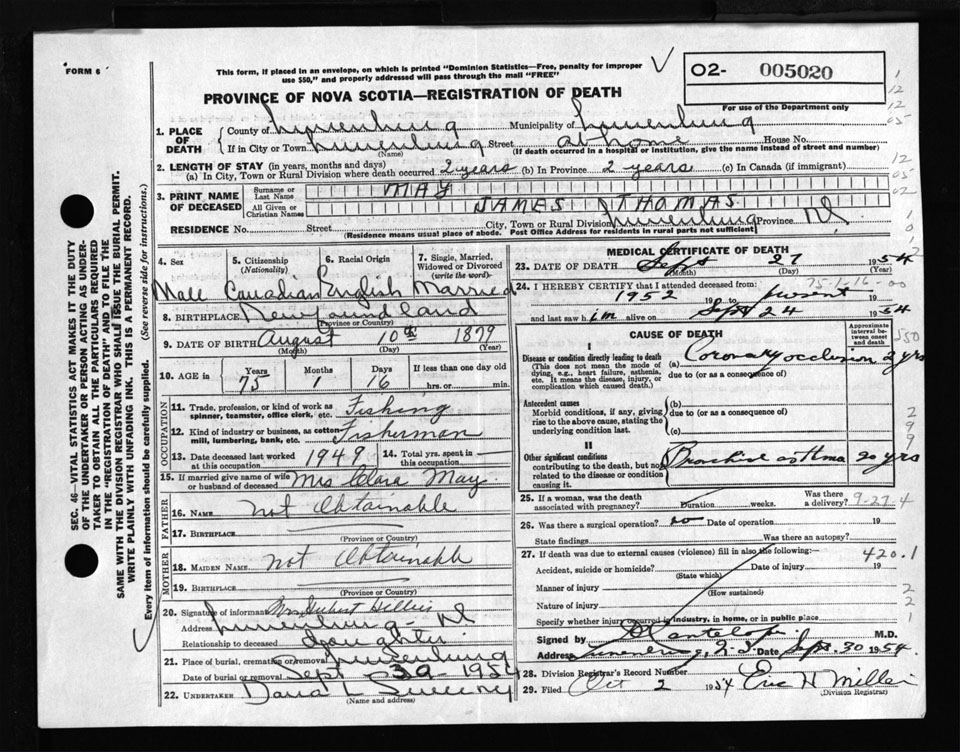 FORM 6
This form, if placed in an envelope, on which is printed "Dominion Statistics—Free, penalty for improper
use $50," and properly addressed will pass through the mail "FREE"
O2- 005020
For use of the Department only
PROVINCE OF NOVA SCOTIA—REGISTRATION OF DEATH
1. PLACE OF DEATH
County of Lunenburg Municipality of Lunenburg
If in City or Town Lunenburg Street at home House No.
(Name) (If death occurred in a hospital or institution, give the name instead of street and number)
2. LENGTH OF STAY (in years, months and days)
(a) In City, Town or Rural Division where death occurred 2 years (b) In Province 2 years (c) In Canada (if immigrant)
3. PRINT NAME OF DECEASED
Surname or Last Name MAY
All Given or Christian Names JAMES THOMAS
RESIDENCE No. Street City, Town or Rural Division Lunenburg Province N.S.
(Residence means usual place of abode. Post Office Address for residents in rural parts not sufficient)
4. Sex
5. Citizenship (Nationality)
6. Racial Origin
7. Single, Married, Widowed or Divorced (write the word)
Male Canadian English Married
8. BIRTHPLACE Newfoundland
(Province or Country)
9. DATE OF BIRTH August 10th 1879
(Month) (Day) (Year)
10. AGE in Years Months Days If less than one day old
75 1 16 hrs. or min.
OCCUPATION
11. Trade, profession, or kind of work as spinner, teamster, office clerk, etc. Fishing
12. Kind of industry or business, as cotton mill, lumbering, bank, etc. Fisherman
13. Date deceased last worked at this occupation 1949
14. Total yrs. spent in this occupation
15. If married give name of wife or husband of deceased Mrs Clara May
FATHER
16. NAME not Obtainable
17. BIRTHPLACE
(Province or Country)
MOTHER
18. MAIDEN NAME not Obtainable
19. BIRTHPLACE
(Province or Country)
20. Signature of informant Mrs Hubert
Address Lunenburg - NS
Relationship to deceased daughter
21. Place of burial, cremation or removal Lunenburg
Date of burial or removal Sept 30 1954
22. UNDERTAKER L Sweeny
(Name and address)
MEDICAL CERTIFICATE OF DEATH
23. DATE OF DEATH Sept 27 1954
(Month) (Day) (Year)
24. I HEREBY CERTIFY that I attended deceased from:
1952 19 to present 19
and last saw him alive on Sept 24 1954
CAUSE OF DEATH
Approximate interval between onset and death
I
Disease or condition directly leading to death
(This does not mean the mode of dying, e.g., heart failure, asthenia, etc. It means the disease, injury, or complication which caused death.)
(a) Coronary occlusion 2 yrs
due to (or as a consequence of)
Antecedent causes
Morbid conditions, if any, giving rise to the above cause, stating the underlying condition last.
(b)
due to (or as a consequence of)
(c)
II
Other significant conditions
contributing to the death, but not related to the disease or condition causing it.
asthma 20 yrs
25. If a woman, was the death associated with pregnancy? Duration weeks. Was there a delivery? 9-27-4
26. Was there a surgical operation? no Date of operation 19
State findings Was there an autopsy?
27. If death was due to external causes (violence) fill in also the following:— 420.1
Accident, suicide or homicide? Date of injury 19
(State which)
Manner of injury
(How sustained)
Nature of injury
Specify whether injury occurred in industry, in home, or in public place
Signed by M.D.
Address Lunenburg, N.S. Date Sept. 30 1954
28. Division Registrar's Record Number
29. Filed Oct 2 1954 Eric H Miller
(Division Registrar)
SEC. 46—VITAL STATISTICS ACT MAKES IT THE DUTY
OF THE UNDERTAKER OR PERSON ACTING AS UNDER-
TAKER TO OBTAIN ALL THE PARTICULARS REQUIRED
IN THE "REGISTRATION OF DEATH" AND TO FILE THE
SAME WITH THE DIVISION REGISTRAR WHO SHALL ISSUE THE BURIAL PERMIT.
WRITE PLAINLY WITH UNFADING INK. THIS IS A PERMANENT RECORD.
Every item of information should be carefully supplied. (See reverse side for instructions.)